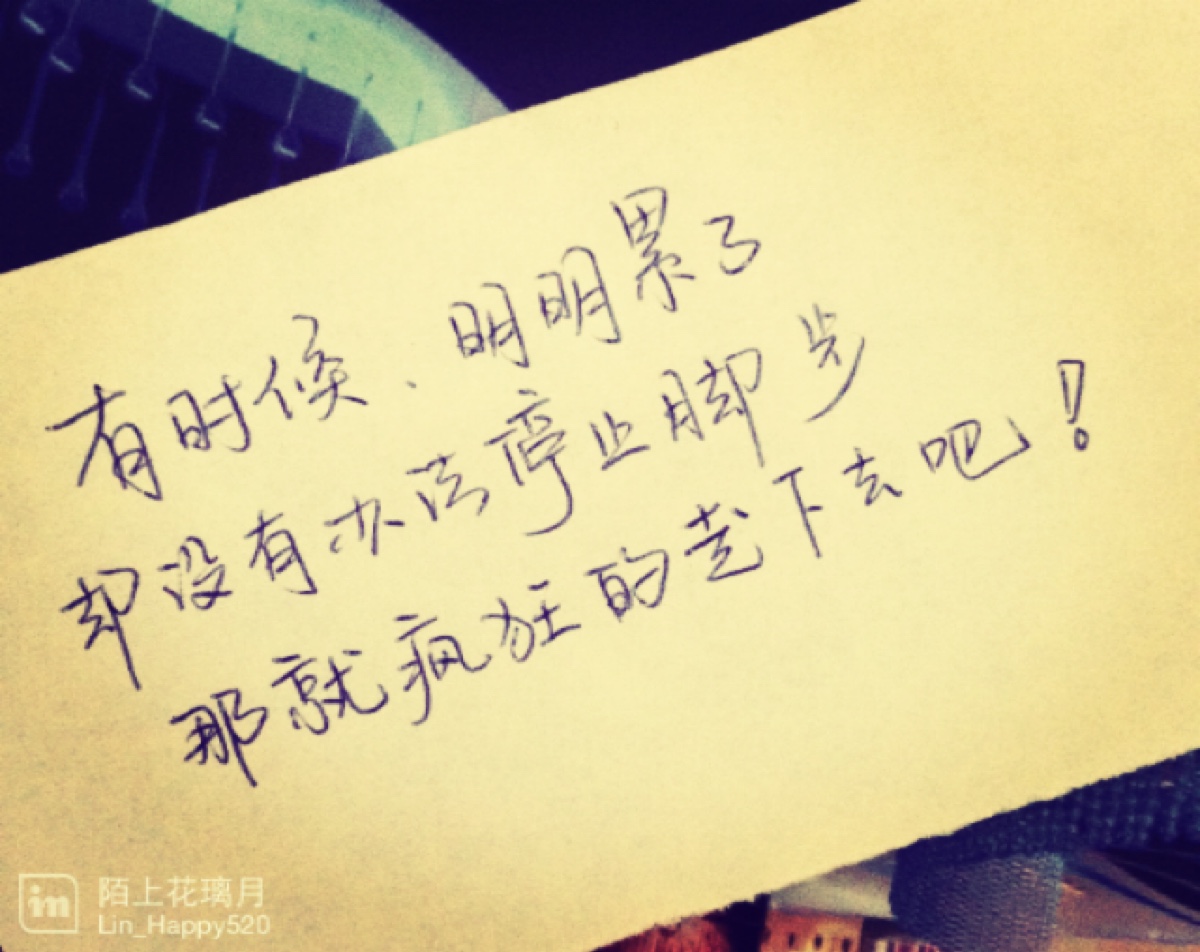 有时候、明明累了
却没有办法停止脚步
那就疯狂的走下去吧!
in 陌上花璃月
Lin_Happy520